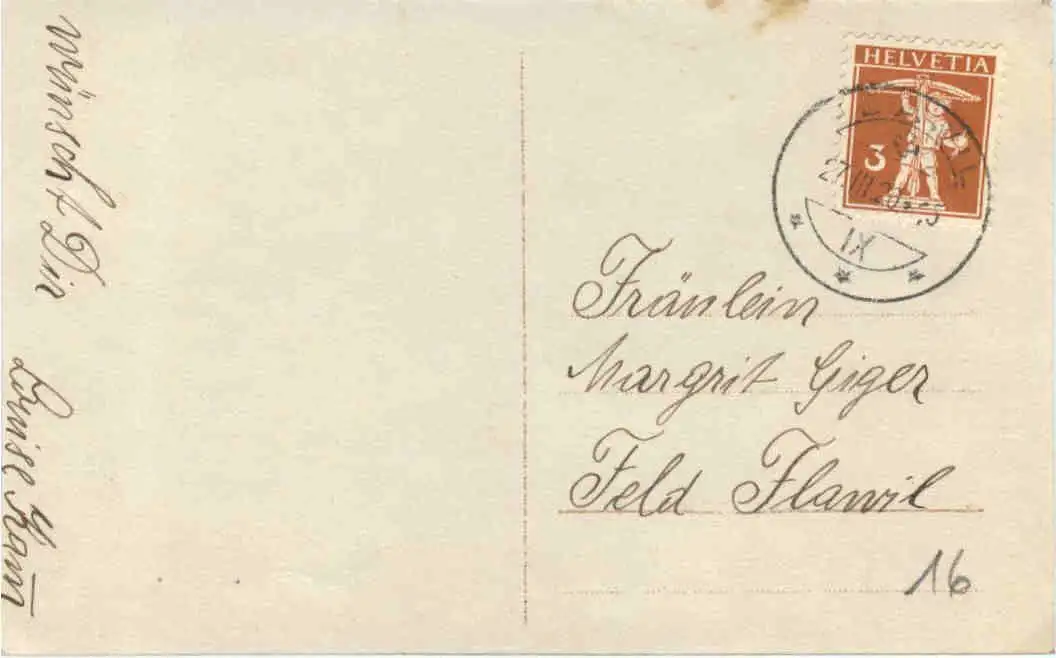 wünscht Dir
Luise Kam
HELVETIA
3
FLAWIL
27.III.20
IX
Fräulein
Margrit Giger
Feld Flawil
16